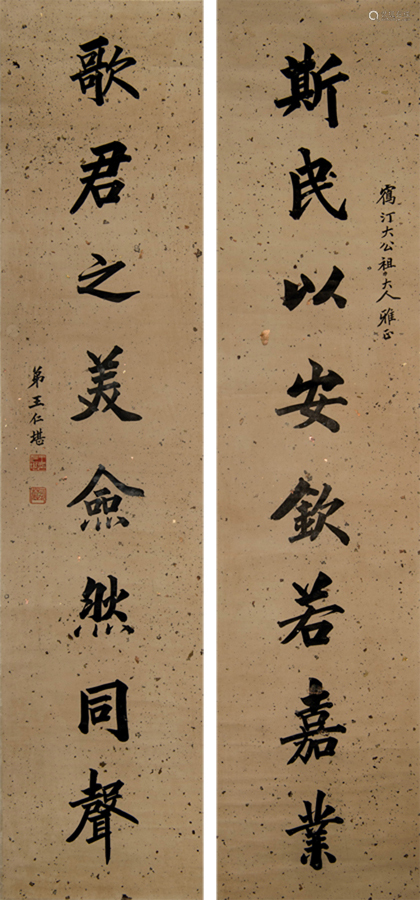 斯民以安欽若嘉業
霱汀大公祖大人雅正
歌君之美僉然同聲
弟王仁堪